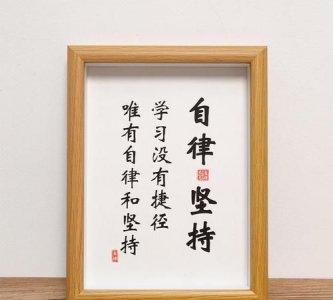 自律 坚持
学习没有捷径
唯有自律和坚持